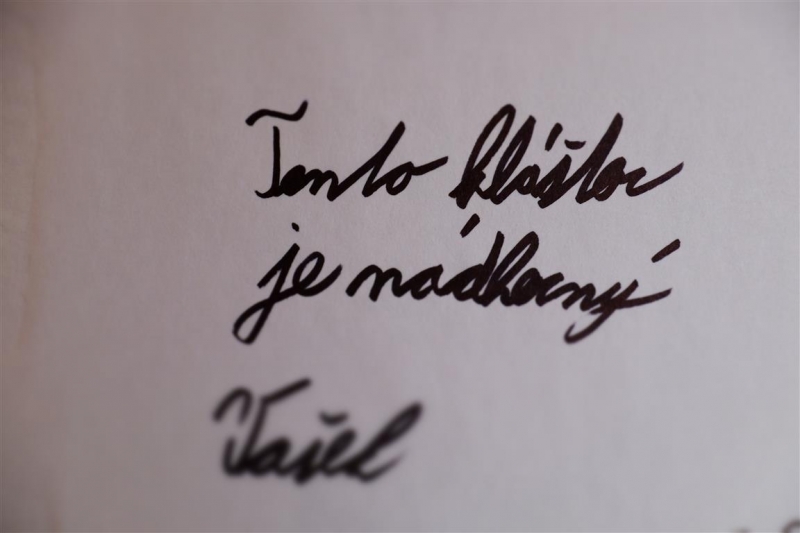 Tento klášter
je nádherný
Vašek